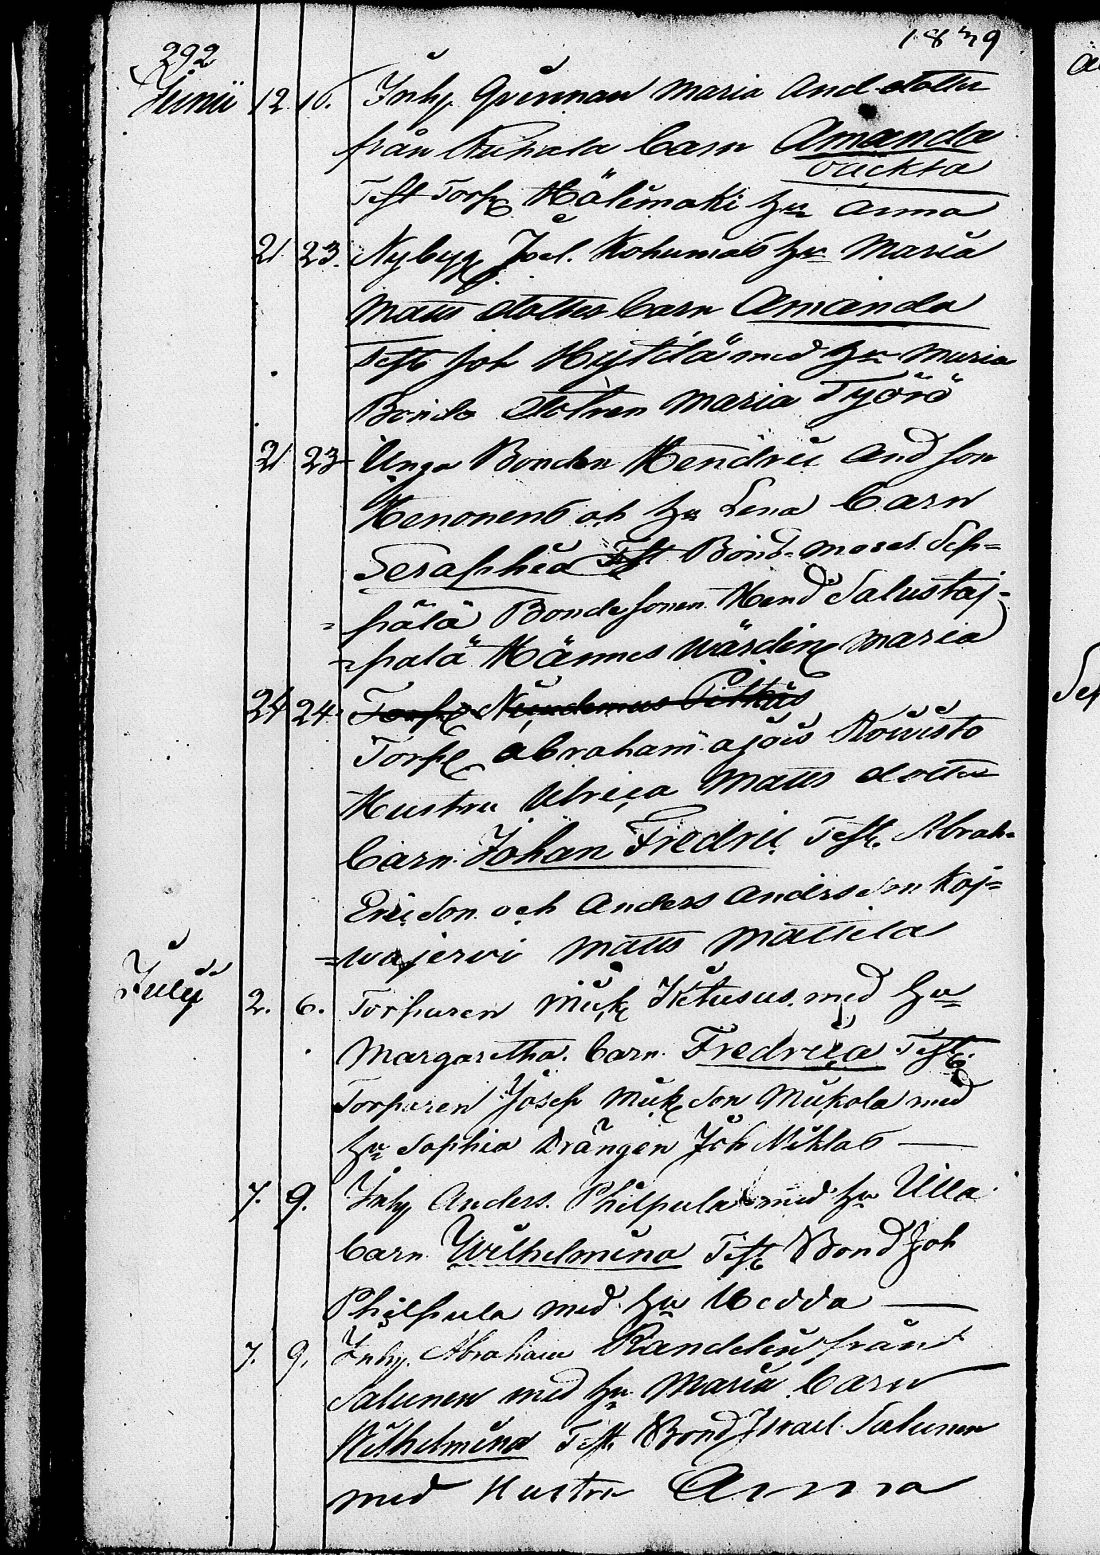 292
1839
Junii 12 16. Inhy. Qvinnan Maria And dotter
från Barn Amanda
oäckta
Test Torp Mälimäki hu Anna
21 23. Nybyg Joel. Kohumäs hu Maria
Matts dotter barn Amanda
Test Joh Kytölä med hu Maria
Bonde dotren Maria Työrö
21 23 Unga Bonden Hendric And son
Henonens och hu Lena Barn
Seraphia Test Bond. Moses Sep=
=pälä Bondesonen Hend Salustaj=
=palä Hännes Wärding Maria
24 24
Torp Abraham ajois Koivisto
Hustru Ulrica Matts dotter
barn Johan Fredric Test. Abrah.
Eric Son och Anders Anders Son Koj=
=wajervi Matts Mattila
July 2. 6. Torparen Mick Ketusus. med hu
Margaretha. barn. Fredrica Test.
Torparen Josep Mick Son Mickola med
hu Sophia Drängen Joh Niklas —
7. 9. Inhy Anders. Philpula med hu Ulla
barn Wilhelmina Test Bond Joh
Philpula med hu Hedda —
7. 9. Inhy. Abraham Randelin från
Salunen med hu Maria barn
Wilhelmina Test. Bond Israel Salunen
med Hustru Anna